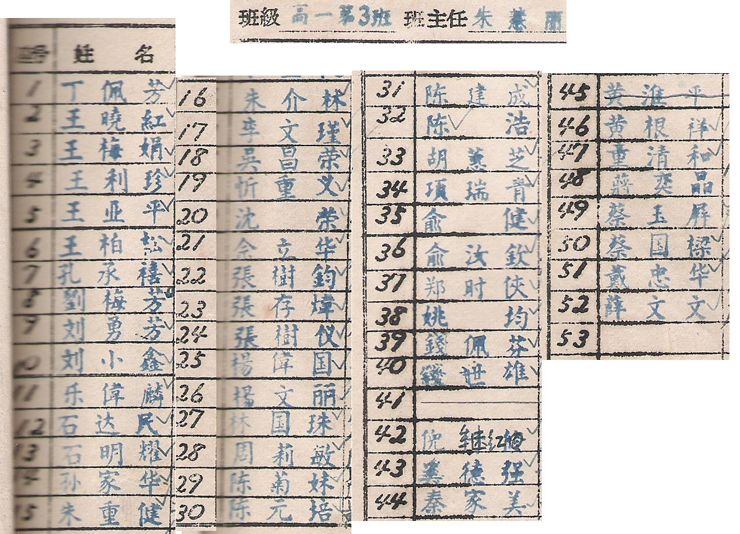 班級 高一第3班 班主任 朱慧丽
姓 名
1 丁佩芳
2 王曉紅
3 王梅娟
4 王利珍
5 王亚平
6 王柏松
7 孔承禧
8 劉梅芳
9 刘勇芳
10 刘小鑫
11 乐偉麟
12 石达民
13 石明耀
14 孙家华
15 朱重健
16 朱介林
17 李文瑾
18 吳昌荣
19 忻重义
20 沈荣
21 余立华
22 張樹鈞
23 張存煒
24 張樹仪
25 楊偉国
26 楊文丽
27 林国珠
28 周莉敏
29 陈菊妹
30 陈元培
31 陈建成
32 陈浩
33 胡蕙芝
34 項瑞青
35 俞健
36 俞汝欽
37 郑时俠
38 姚均
39 錢佩芬
40 錢世雄
41
42 倪继红
43 德强
44 秦家美
45 黄淮平
46 黄根祥
47 童清和
48 蔣奕晶
49 蔡玉屏
50 蔡国樑
51 戴忠华
52 薛文文
53